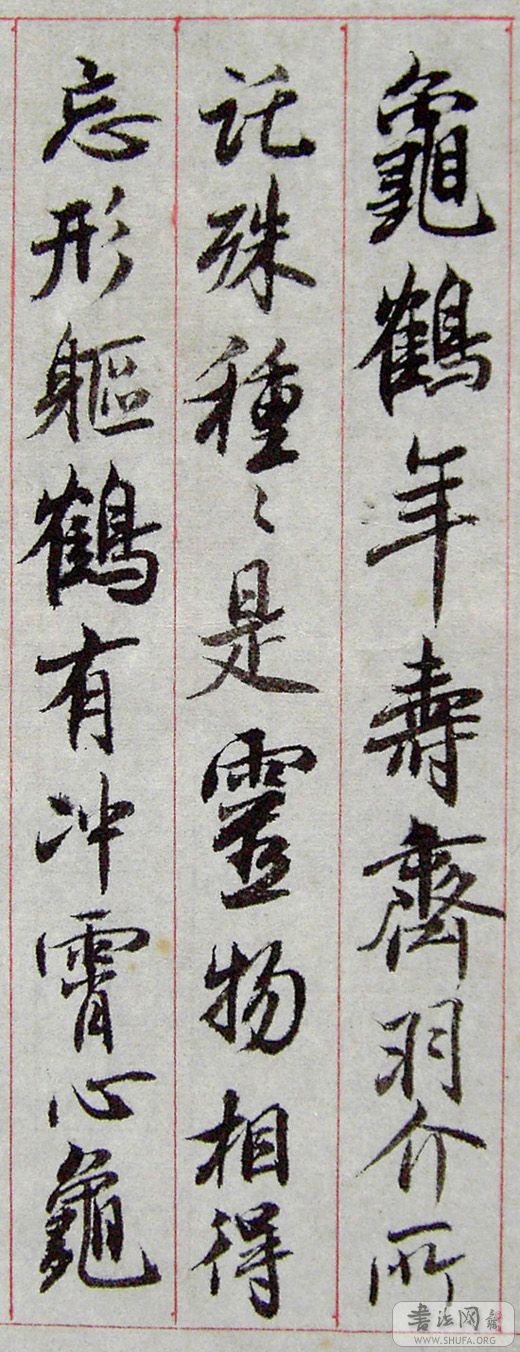 龜鶴年壽齊羽介所
託殊種〻是靈物相得
忘形軀鶴有冲霄心龜
書法网
WWW.SHUFA.ORG